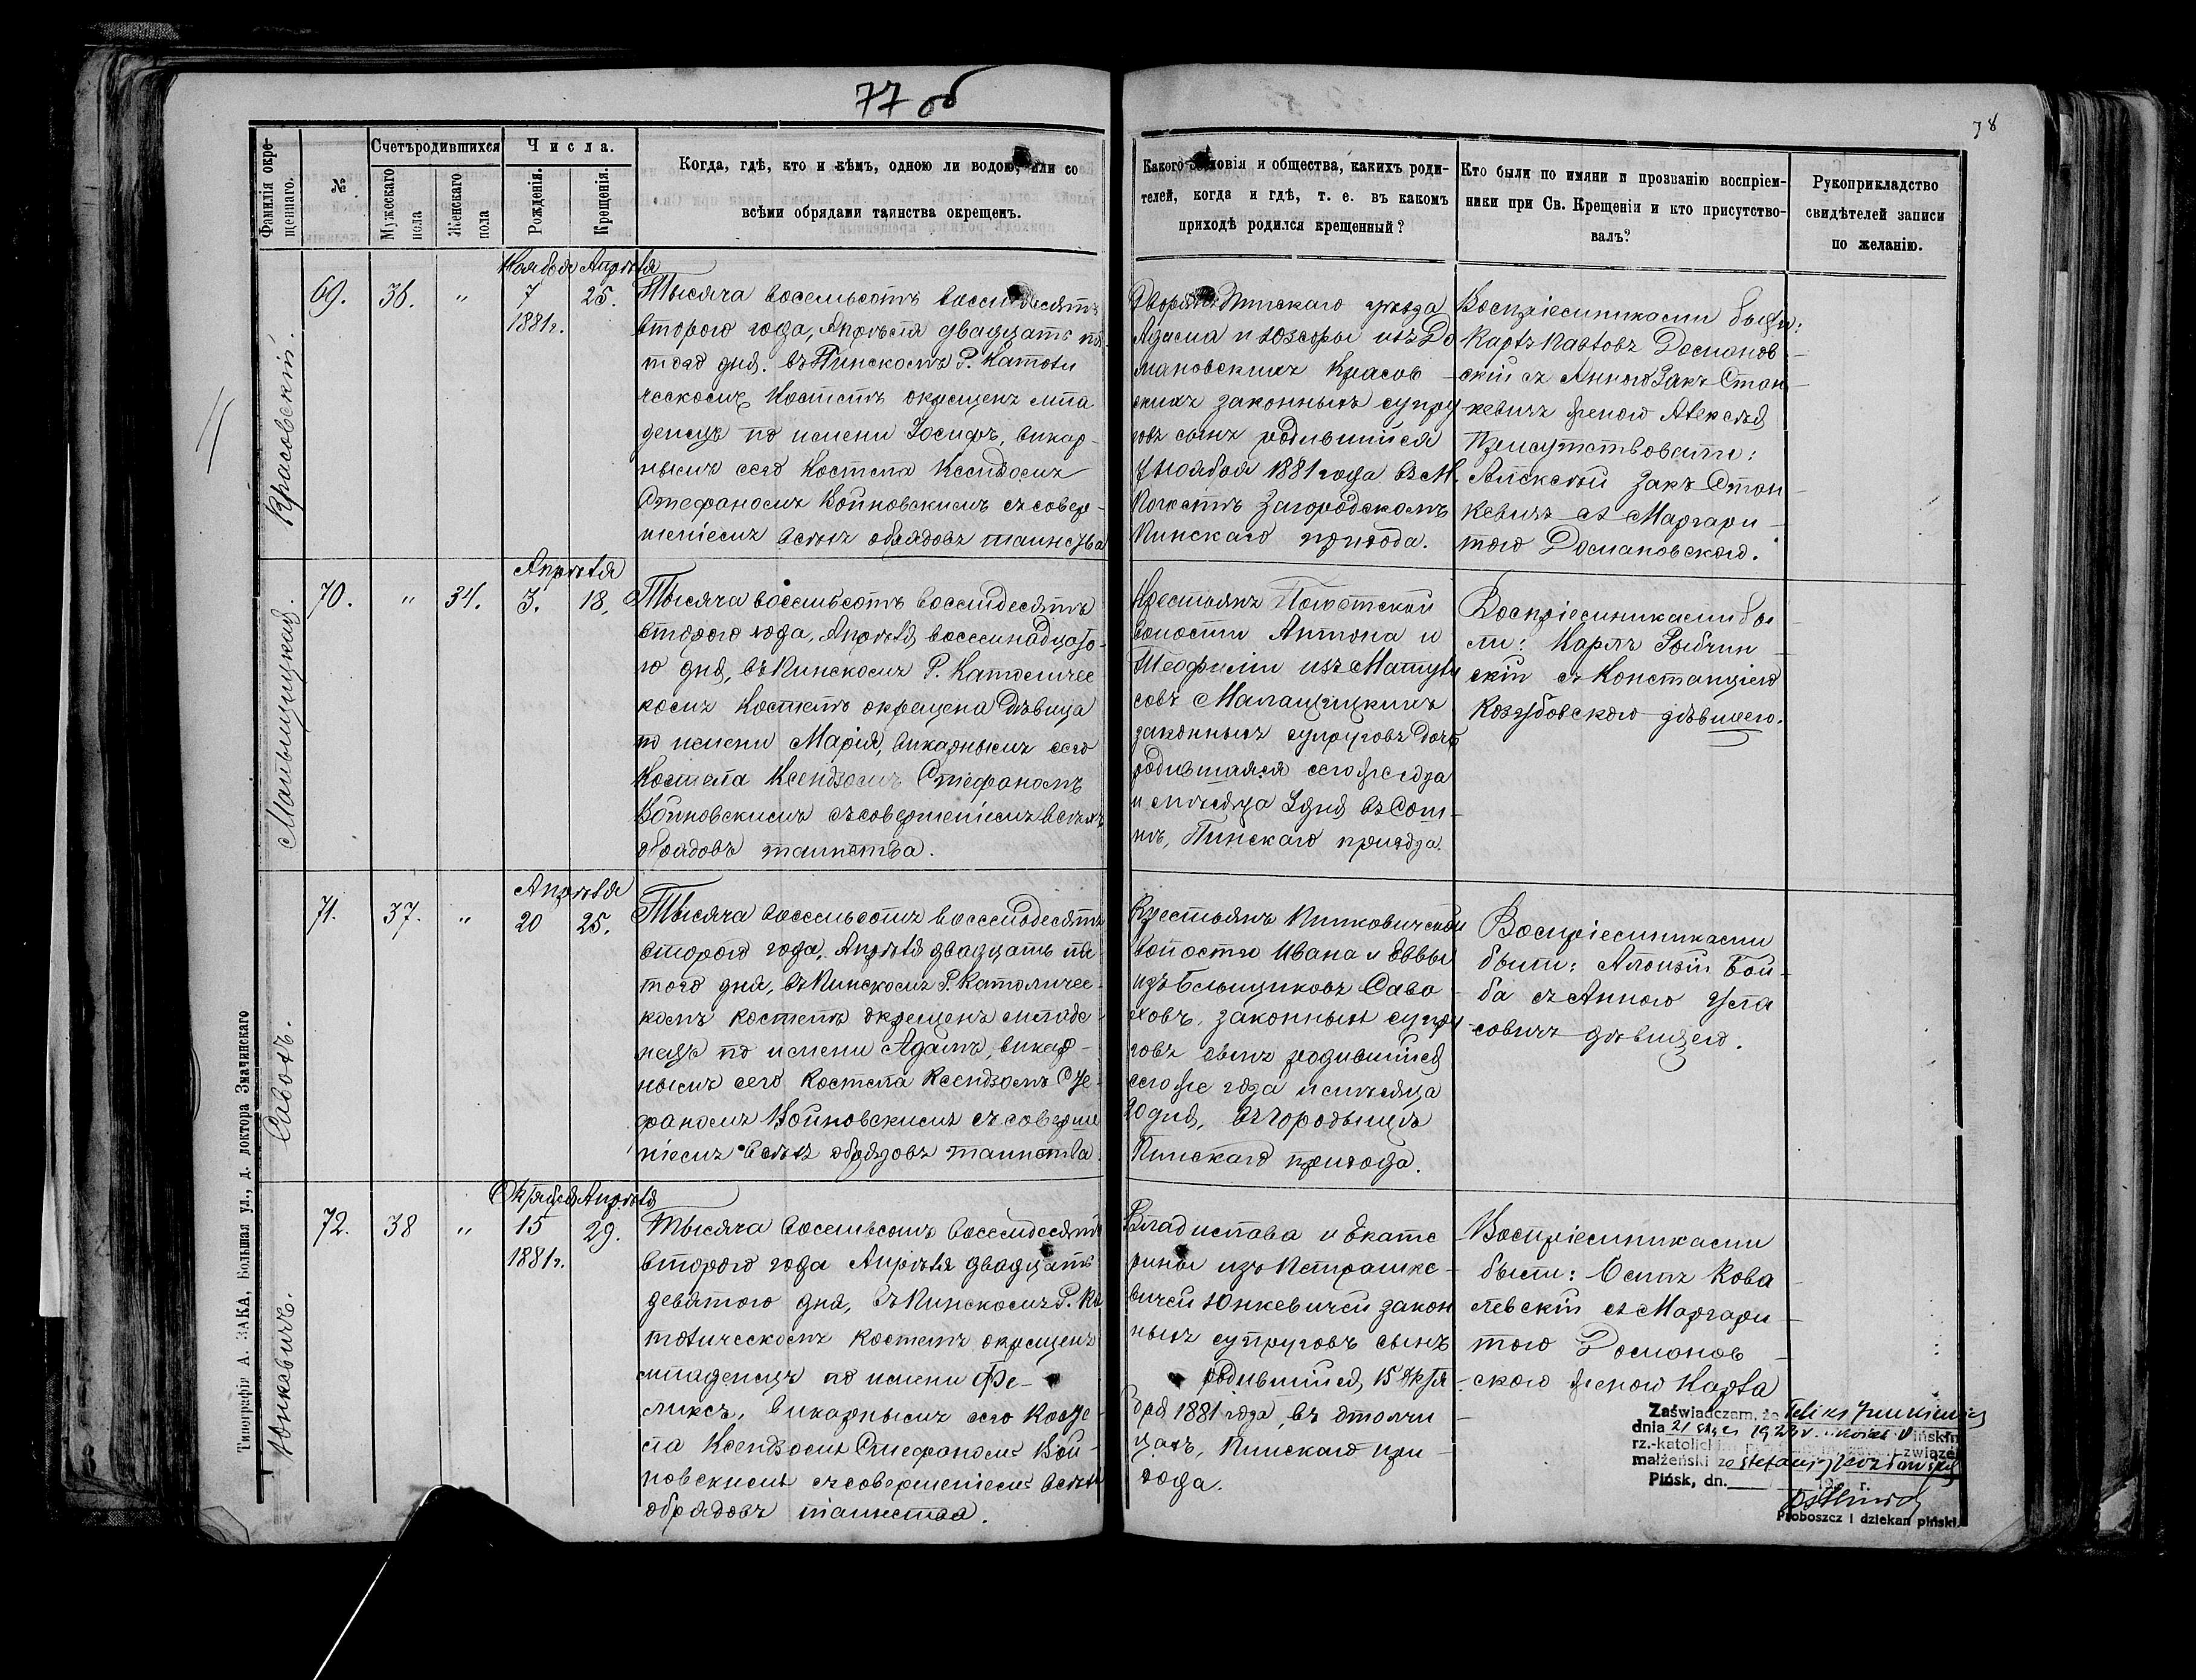 77 об
78
Фамилія окре-
щеннаго.
№
Счетъ родившихся
Мужескаго
пола
Женскаго
пола
Числа.
Рожденія.
Крещенія.
Когда, гдѣ, кто и кѣмъ, одною ли водою, или со
всѣми обрядами таинства окрещенъ.
Какого условія и общества, какихъ роди-
телей, когда и гдѣ, т. е. въ какомъ
приходѣ родился крещенный?
Кто были по имяни и прозванію воспріем-
ники при Св. Крещеніи и кто присутство-
валъ?
Рукоприкладство
свидѣтелей записи
по желанію.
Красовскій.
69.
36.
"
Ноября
7
1881г.
Апрѣля
25.
Тысяча восемьсотъ восемьдесятъ
второго года, Апрѣля двадцать пя
того дня. въ Пинскомъ Р. Католи
ческомъ Костелѣ окрещенъ мла
денецъ по имени Іосифъ, викар-
нымъ сего Костела Ксендзомъ
Стефаномъ Войновскимъ съ совер-
шеніемъ всѣхъ обрядовъ таинства
Дворянъ Пинскаго уѣзда
Адама и Юзефы изъ До
мановскихъ Красов
скихъ законныхъ супру
говъ сынъ родившійся
7 ноября 1881 года въ М.
Погостѣ Загородскомъ
Пинскаго прихода.
Воспріемниками были:
Карлъ Павловъ Домановскій
съ Анною Закъ Стан-
кевичъ женою Алексѣя
Присутствовали:
Алексѣй Закъ Стан-
кевичъ съ Маргари-
тою Домановскою.
70.
"
34.
Апрѣля
3.
18.
Тысяча восемьсотъ восемьдесятъ
второго года, Апрѣля восемнадцато-
го дня, въ Пинскомъ Р. Католичес
комъ Костелѣ окрещена дѣвица
по имени Марія, викарнымъ сего
Костела Ксендзомъ Стефаномъ
Войновскимъ съ совершеніемъ всѣхъ
обрядовъ таинства.
Крестьянъ Погостской
волости Антона и
Теофиліи изъ
законныхъ супруговъ дочь
родившаяся сего же года
и мѣсяца 3 дня въ
Пинскаго прихода.
Воспріемниками бы
ли: Карлъ
скій съ Констанціею
Козубовскою дѣвицею.
Савохъ.
71.
37.
"
Апрѣля
20
25.
Тысяча восемьсотъ восемьдесятъ
второго года, Апрѣля двадцать пя
того дня, въ Пинскомъ Р. Католичес
комъ костелѣ окрещенъ младе
нецъ по имени Адамъ, викар-
нымъ сего Костела Ксендзомъ Сте-
фаномъ Войновскимъ съ соверше
ніемъ всѣхъ обрядовъ таинства.
Крестьянъ Пинковичской
волости Ивана и Еввы
изъ Бельщиковъ Саво
ховъ, законныхъ супру
говъ сынъ родившійся
сего же года и мѣсяца
20 дня, въ Городищѣ
Пинскаго прихода.
Воспріемниками
были: Алоизій Бой-
ба съ Анною Ула
совичъ дѣвицею.
Юнкевичъ.
72.
38
"
Октября
15
1881г.
Апрѣля
29.
Тысяча восемьсотъ восемьдесятъ
второго года Апрѣля двадцать
девятого дня, въ Пинскомъ Р. Ка
толическомъ костелѣ окрещенъ
младенецъ по имени Фе-
ликсъ, викарнымъ сего Косте-
ла Ксендзомъ Стефаномъ Вой-
новскимъ съ совершеніемъ всѣхъ
обрядовъ таинства.
Владислава и Екате
рины изъ Петрашке-
вичей Юнкевичей закон
ныхъ супруговъ сынъ
родившійся 15 Октя-
бря 1881 года, въ Столчи
цахъ, Пинскаго при-
хода.
Воспріемниками
были: Осипъ Кова
левскій съ Маргари-
тою Доманов-
скою женою Карла
Zaświadczam, że Feliks Junkiewicz
dnia 21
rz.-katolickim związek
małżeński ze Stefanją
Pińsk, dn. 19 r.
Proboszcz i dziekan piński.
Типографія А. ЗАКА, Большая ул., д. доктора Значинскаго